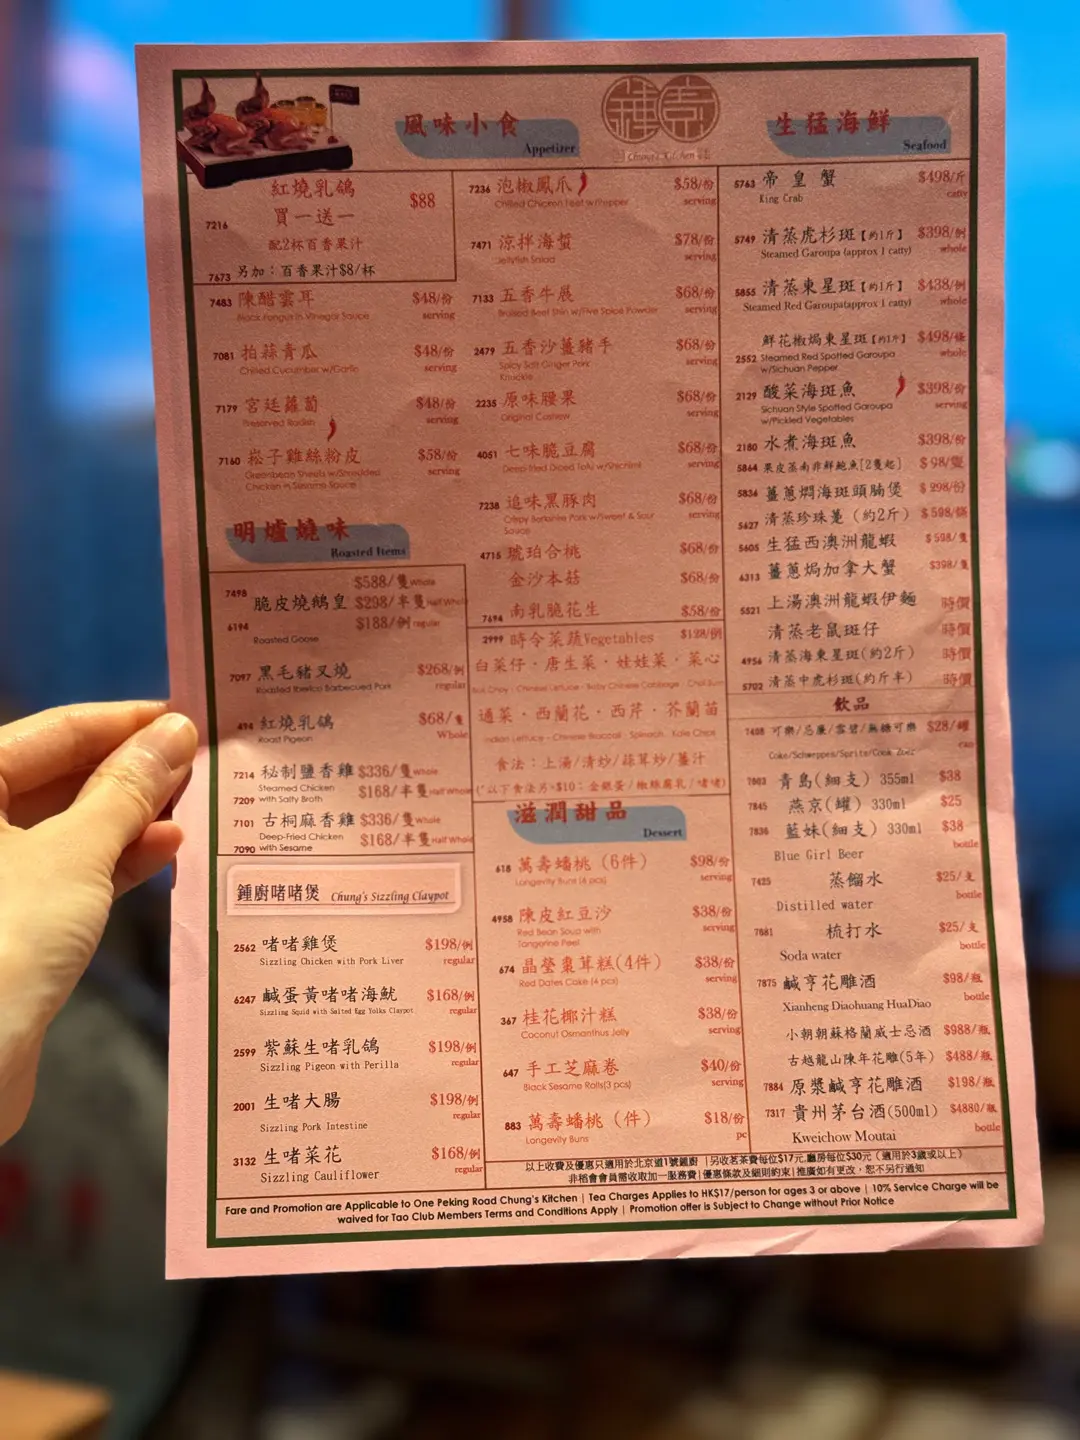 風味小食
Appetizer
Chung's Kitchen
生猛海鮮
Seafood
紅燒乳鴿
7216 買一送一 $88
配2杯百香果汁
7673 另加：百香果汁$8/杯
7483 陳醋雲耳 $48/份
Black Fungus in Vinegar Sauce serving
7081 拍蒜青瓜 $48/份
Chilled Cucumber w/Garlic serving
7179 宮廷蘿蔔 $48/份
Preserved Radish serving
7160 菘子雞絲粉皮 $58/份
Greenbean Sheets w/Shredded serving
Chicken in Sesame Sauce
明爐燒味
Roasted Items
7498 脆皮燒鵝皇 $588/隻 Whole
$298/半隻 Half Whole
6194 $188/例 regular
Roasted Goose
7097 黑毛豬叉燒 $268/例
Roasted Iberico Barbecued Pork regular
494 紅燒乳鴿 $68/隻
Roast Pigeon Whole
7214 秘制鹽香雞 $336/隻 Whole
Steamed Chicken $168/半隻 Half Whole
7209 with Salty Broth
7101 古桐麻香雞 $336/隻 Whole
Deep-Fried Chicken $168/半隻 Half Whole
7090 with Sesame
鍾廚啫啫煲 Chung's Sizzling Claypot
2562 啫啫雞煲 $198/例
Sizzling Chicken with Pork Liver regular
6247 鹹蛋黃啫啫海魷 $168/例
Sizzling Squid with Salted Egg Yolks Claypot regular
2599 紫蘇生啫乳鴿 $198/例
Sizzling Pigeon with Perilla regular
2001 生啫大腸 $198/例
Sizzling Pork Intestine regular
3132 生啫菜花 $168/例
Sizzling Cauliflower regular
7236 泡椒鳳爪 $58/份
Chilled Chicken Feet w/Pepper serving
7471 涼拌海蜇 $78/份
Jellyfish Salad serving
7133 五香牛展 $68/份
Braised Beef Shin w/Five Spice Powder serving
2479 五香沙薑豬手 $68/份
Spicy Salt Ginger Pork serving
Knuckle
2235 原味腰果 $68/份
Original Cashew serving
4051 七味脆豆腐 $68/份
Deep-fried Diced Tofu w/Shichimi serving
7238 追味黑豚肉 $68/份
Crispy Berkshire Pork w/Sweet & Sour serving
Sauce
4715 琥珀合桃 $68/份
金沙本菇 $68/份
7694 南乳脆花生 $58/份
2999 時令菜蔬Vegetables $128/例
白菜仔 · 唐生菜 · 娃娃菜 · 菜心
Bok Choy · Chinese Lettuce · Baby Chinese Cabbage · Choi Sum
通菜 · 西蘭花 · 西芹 · 芥蘭苗
Indian Lettuce · Chinese Broccoli · Spinach · Kale Chips
食法：上湯/清炒/蒜茸炒/薑汁
(*以下食法另+$10：金銀蛋/椒絲腐乳/啫啫)
滋潤甜品
Dessert
618 萬壽蟠桃 (6件) $98/份
Longevity Buns (6 pcs) serving
4958 陳皮紅豆沙 $38/份
Red Bean Soup with serving
Tangerine Peel
674 晶瑩棗茸糕(4件) $38/份
Red Dates Cake (4 pcs) serving
367 桂花椰汁糕 $38/份
Coconut Osmanthus Jelly serving
647 手工芝麻卷 $40/份
Black Sesame Rolls(3 pcs) serving
883 萬壽蟠桃 (件) $18/份
Longevity Buns pc
5763 帝皇蟹 $498/斤
King Crab catty
5749 清蒸虎杉斑【約1斤】 $398/例
Steamed Garoupa (approx 1 catty) whole
5855 清蒸東星斑【約1斤】 $438/例
Steamed Red Garoupa(approx 1 catty) whole
鮮花椒焗東星斑【約1斤】 $498/條
2552 Steamed Red Spotted Garoupa whole
w/Sichuan Pepper
2129 酸菜海斑魚 $398/份
Sichuan Style Spotted Garoupa serving
w/Pickled Vegetables
2180 水煮海斑魚 $398/份
5864 果皮蒸南非鮮鮑魚[2隻起] $98/隻
5836 薑蔥燜海斑頭腩煲 $298/份
5627 清蒸珍珠躉 (約2斤) $598/條
5605 生猛西澳洲龍蝦 $598/隻
6313 薑蔥焗加拿大蟹 $398/隻
5521 上湯澳洲龍蝦伊麵 時價
清蒸老鼠斑仔 時價
4956 清蒸海東星斑(約2斤) 時價
5702 清蒸中虎杉斑(約斤半) 時價
飲品
7488 可樂/忌廉/雪碧/無糖可樂 $28/罐
Coke/Schweppes/Sprite/Cook Zoez can
7883 青島(細支) 355ml $38
7845 燕京(罐) 330ml $25
7836 藍妹(細支) 330ml $38
Blue Girl Beer bottle
7425 蒸餾水 $25/支
Distilled water bottle
7881 梳打水 $25/支
Soda water bottle
7875 鹹亨花雕酒 $98/瓶
Xianheng Diaohuang HuaDiao bottle
小朝朝蘇格蘭威士忌酒 $988/瓶
古越龍山陳年花雕(5年) $488/瓶
7884 原漿鹹亨花雕酒 $198/瓶
7317 貴州茅台酒(500ml) $4880/瓶
Kweichow Moutai bottle
以上收費及優惠只適用於北京道1號鍾廚 | 另收茗茶費每位$17元,廳房每位$30元 (適用於3歲或以上)
非稻會會員需收取加一服務費|優惠條款及細則約束|推廣如有更改，恕不另行通知
Fare and Promotion are Applicable to One Peking Road Chung's Kitchen | Tea Charges Applies to HK$17/person for ages 3 or above | 10% Service Charge will be
waived for Tao Club Members Terms and Conditions Apply | Promotion offer is Subject to Change without Prior Notice